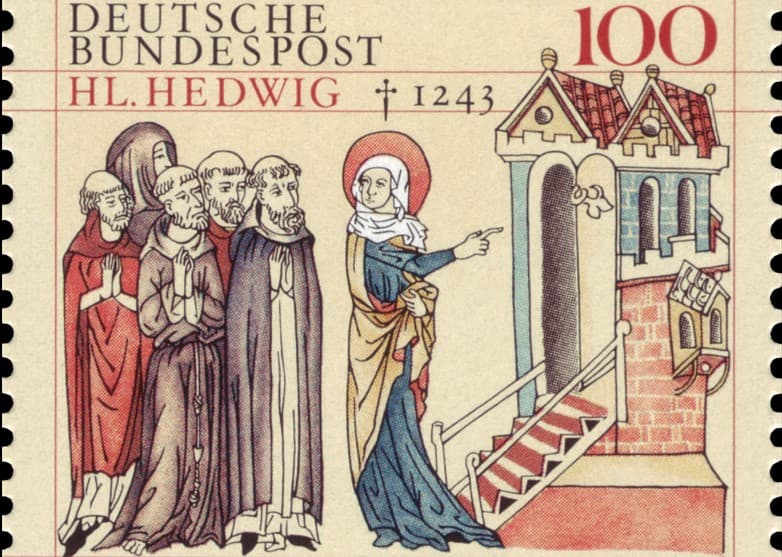 DEUTSCHE
BUNDESPOST
100
HL. HEDWIG † 1243